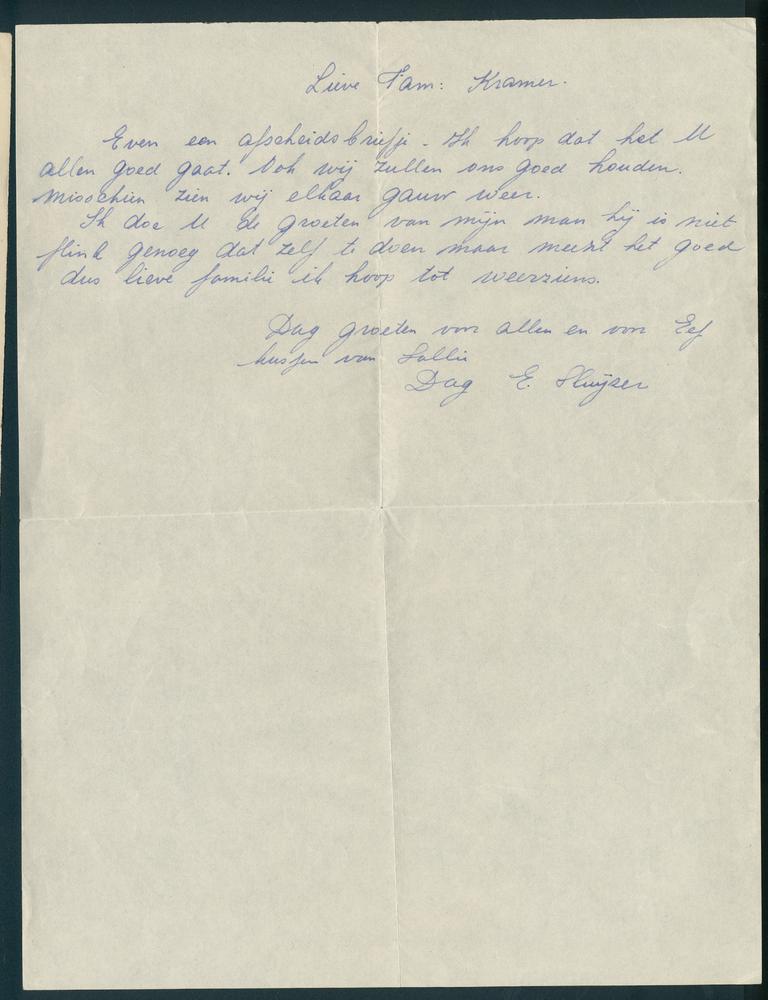 Lieve Fam: Kramer.
Even een afscheidsbriefje. Ik hoop dat het U
allen goed gaat. Ook wij zullen ons goed houden.
Misschien zien wij elkaar gauw weer.
Ik doe U de groeten van mijn man hij is niet
flink genoeg dat zelf te doen maar meent het goed
dus lieve familie ik hoop tot weerziens.
Dag groeten voor allen en voor Eef
kusjen van Sallie
Dag E. Sluijzer